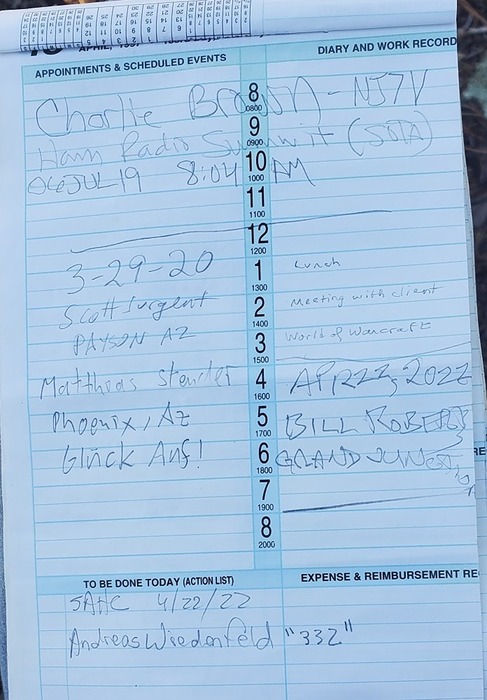 APPOINTMENTS & SCHEDULED EVENTS
DIARY AND WORK RECORD
8
0800
9
0900
10
1000
11
1100
12
1200
1
1300
2
1400
3
1500
4
1600
5
1700
6
1800
7
1900
8
2000
Charlie Brown - NJ7V
Ham Radio Summit (SOTA)
06JUL19 8:04 AM
3-29-20
Scott Surgent
PAYSON AZ
Matthias
Phoenix, Az
Glück Auf!
Lunch
Meeting with client
World of Warcraft
APR 22, 2022
BILL ROBERTS
GRAND JUNCTION
TO BE DONE TODAY (ACTION LIST)
EXPENSE & REIMBURSEMENT RE
SAHC 4/22/22
Andreas Wiedenfeld "332"